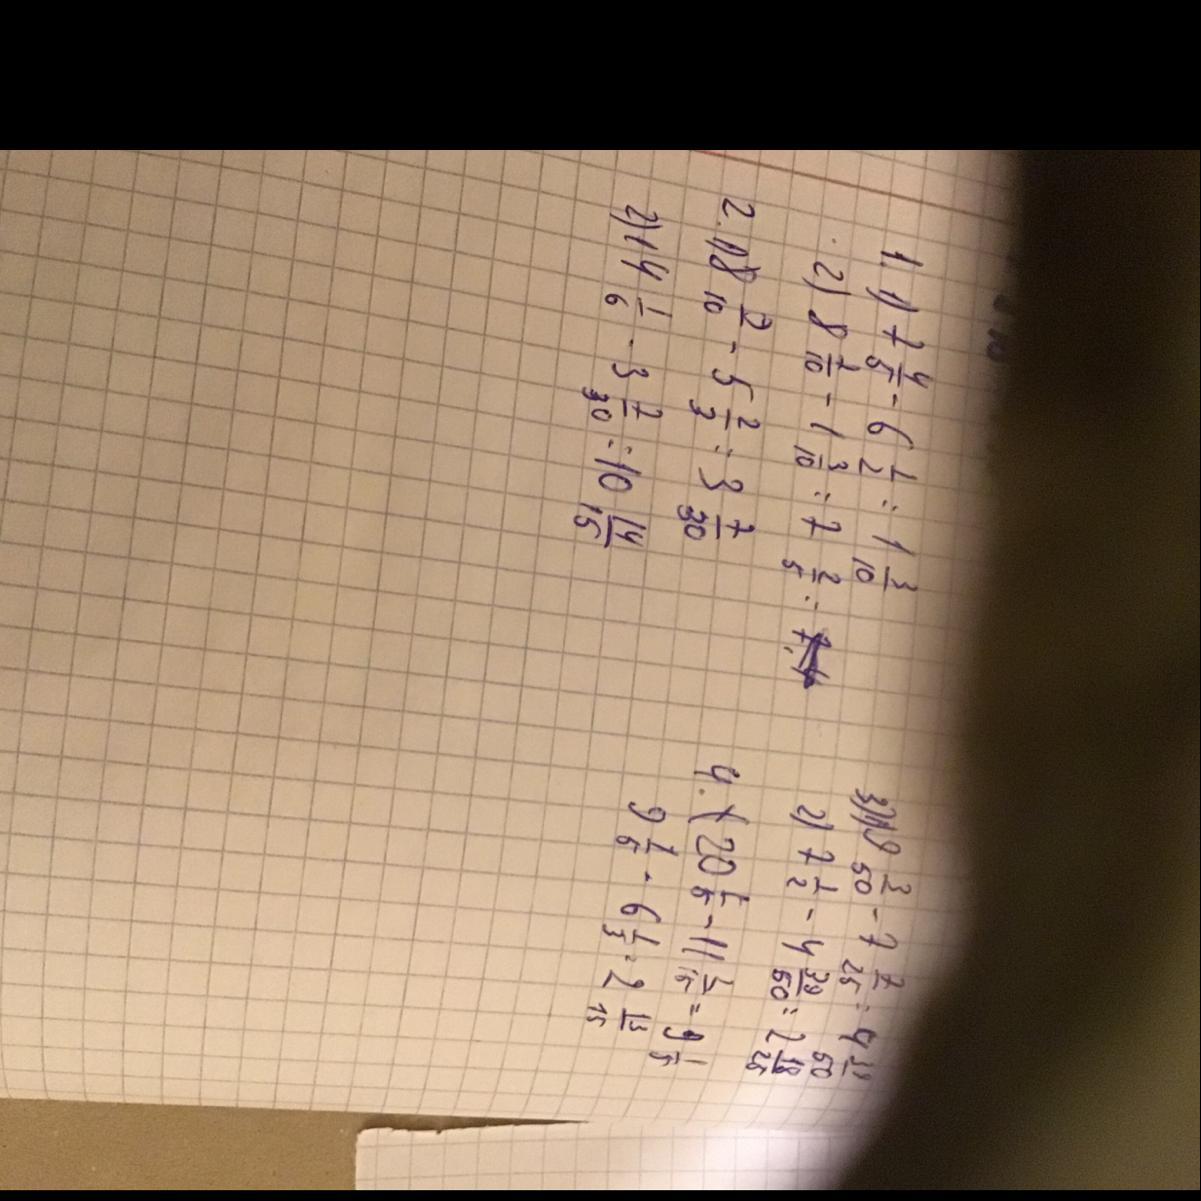 1. 1) 7 4/5 - 6 1/2 = 1 3/10
2) 8 7/10 - 1 3/10 = 7 2/5 =
2. 1) 8 9/10 - 5 2/3 = 3 7/30
2) 14 1/6 - 3 7/30 = 10 14/15
50 - 7 2/25 = 4 39/50
2) 7 1/2 - 4 39/50 = 2 18/25
4. 1) 20 - 11 = 9 1/5
9 1/5 - 6 1/3 = 2 13/15